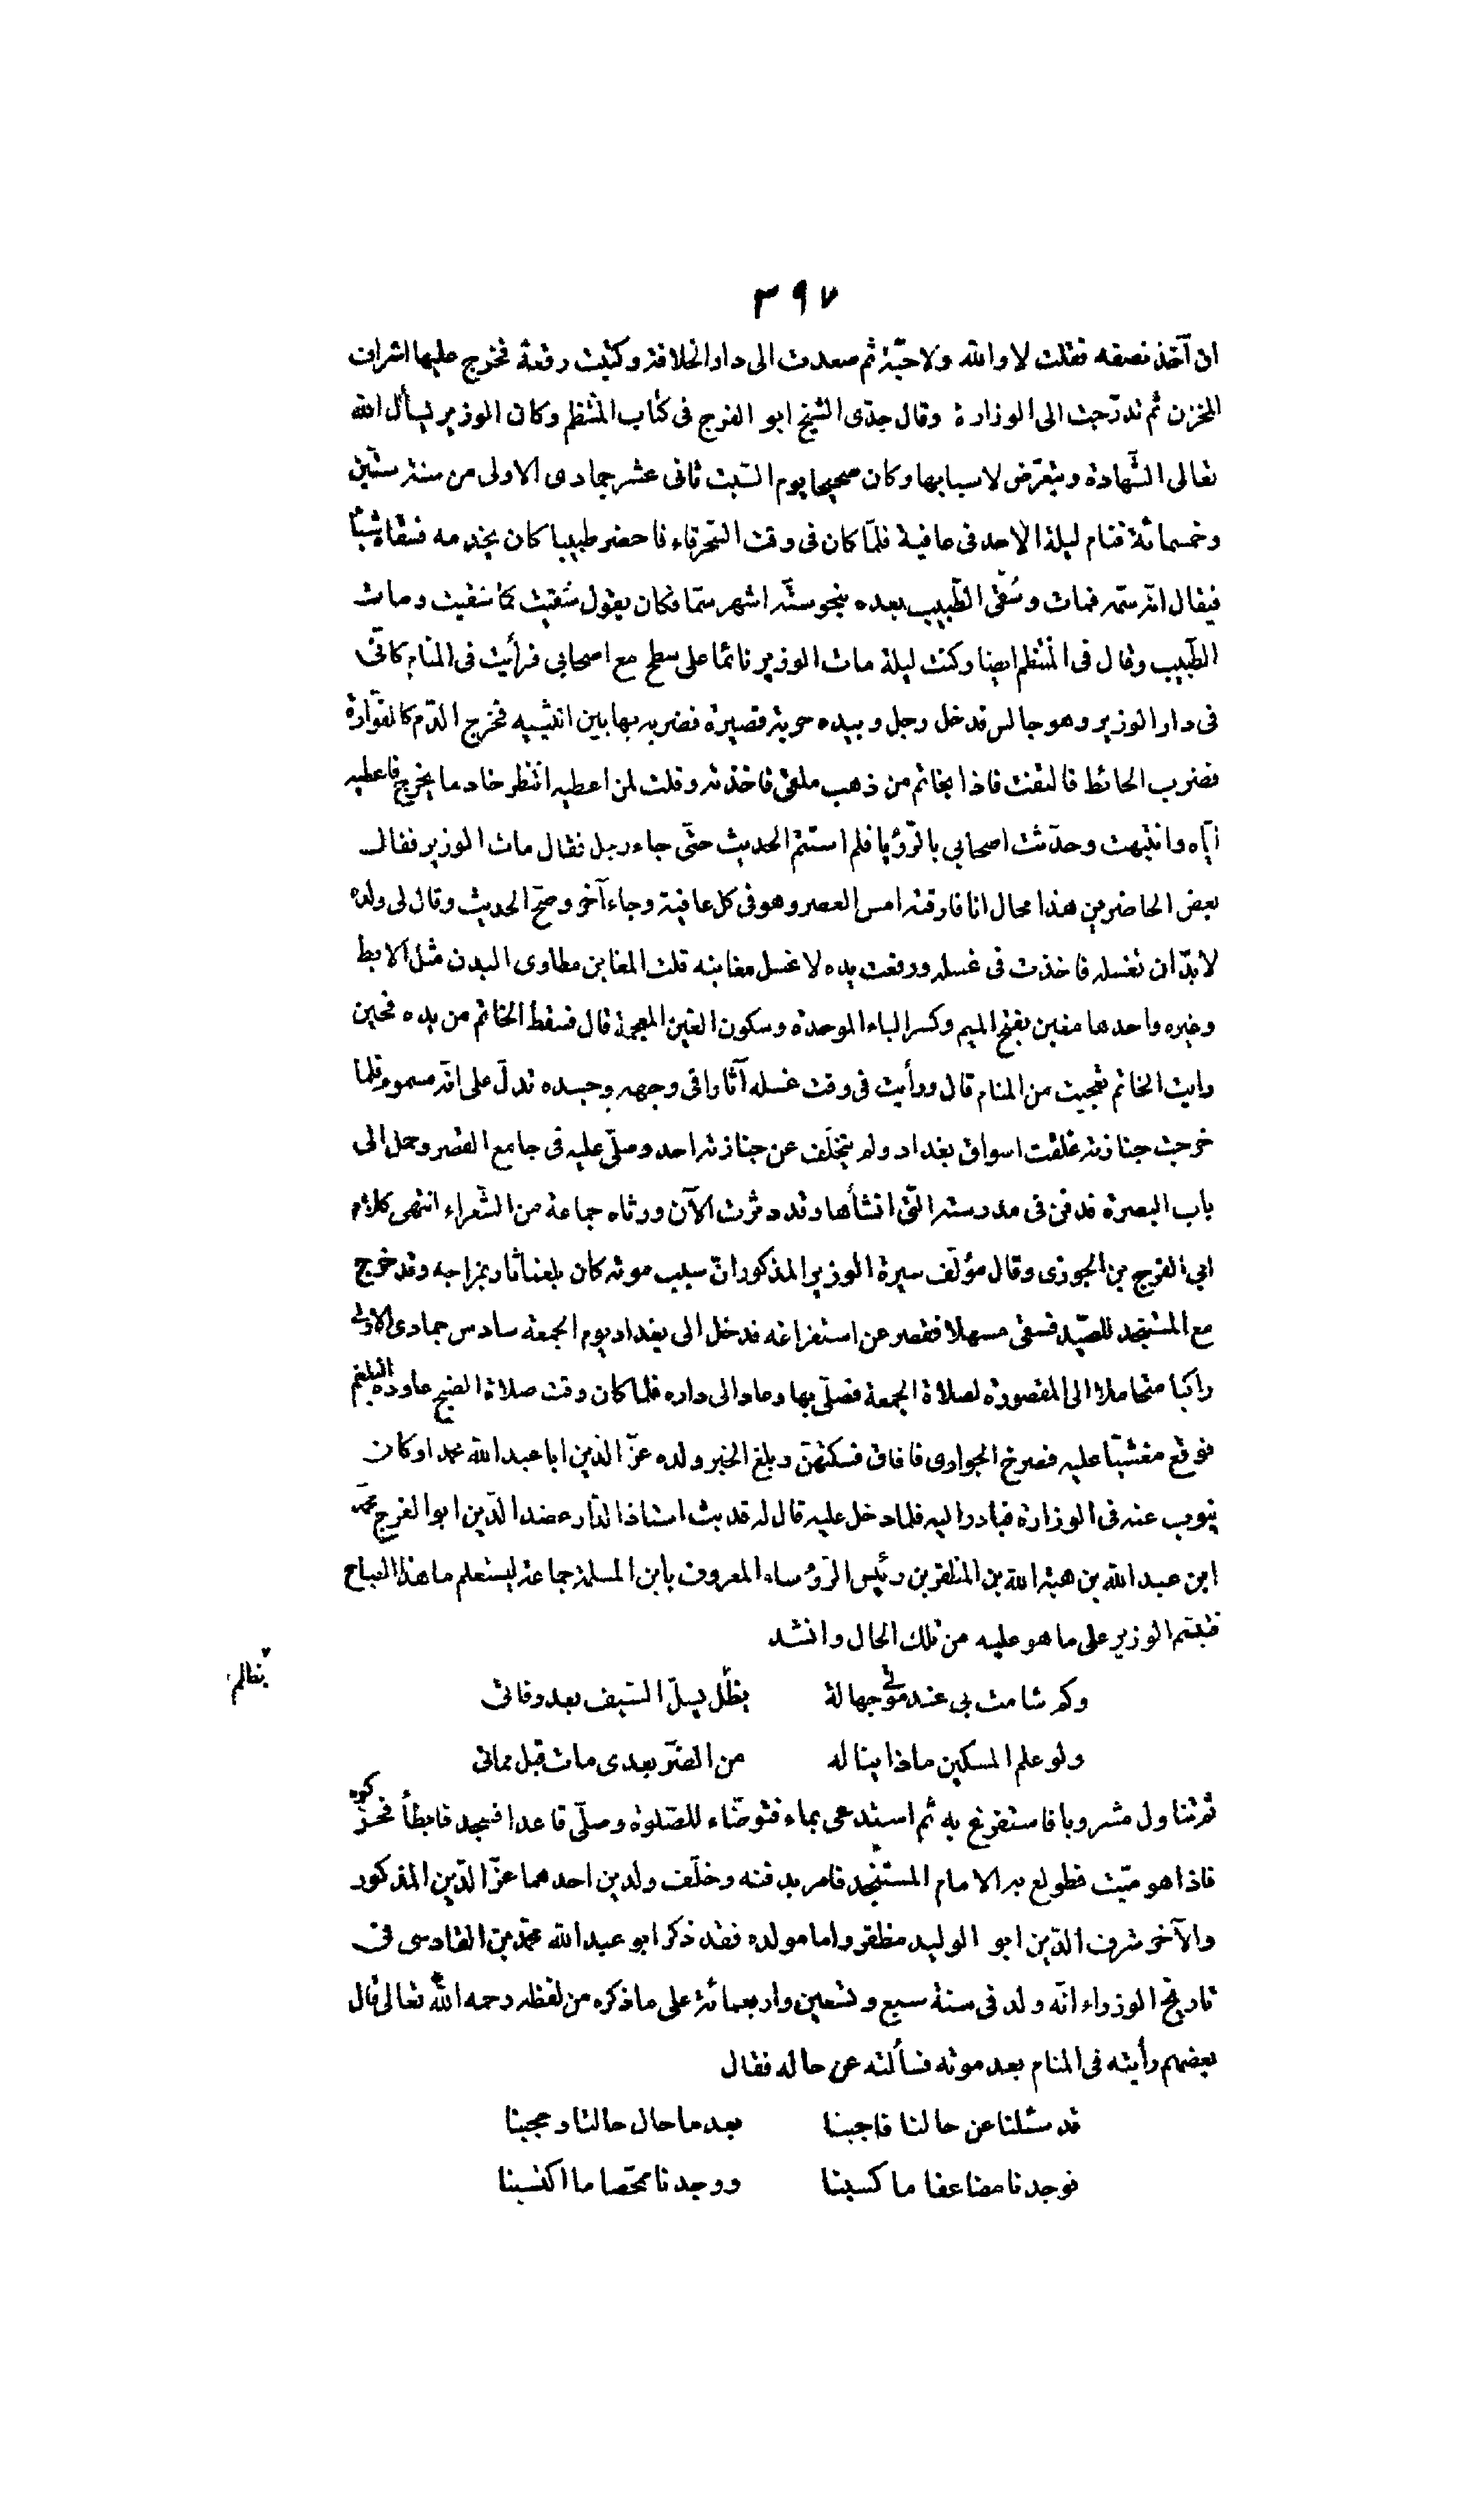 ٣٩٧
ان آخذ نصفه فقلت لا والله ولا حبّة ثم صعدت الى دار الخلافة وكتبت رقعة فخرج عليها اشراف
المخزن ثم تدرّجت الى الوزارة وقال جدّى الشيخ ابو الفرج فى كتاب المنتظم وكان الوزير يسأل الله
تعالى الشّهادة ويتعرّض لاسبابها وكان صحيحا يوم السّبت ثانى عشر جمادى الاولى من سنة ستّين
وخمسمائة فنام ليلة الاحد فى عافية فلمّا كان فى وقت السّحر قاء فاحضر طبيبا كان يخدمه فسقاه شيئا
فيقال انّه سمّه فمات وسُقى الطّبيب بعده بنحو ستّة اشهر سمّا فكان يقول سُقيت كما سقيت ومات
الطّبيب وقال فى المنتظم ايضا وكنت ليلة مات الوزير نائما على سطح مع اصحابى فرأيت فى المنام كانّى
فى دار الوزير وهو جالس فدخل رجل وبيده حربة قصيرة فضربه بها بين انثييه فخرج الدّم كالفوّارة
فضرب الحائط فالتفت فاذا بخاتم من ذهب ملقى فاخذته وقلت لمن اعطيه انتظر خادما يخرج فاعطيه
ايّاه وانتبهت وحدّثت اصحابى بالرّؤيا فلم استتم الحديث حتّى جاء رجل فقال مات الوزير فقال
بعض الحاضرين هذا محال انا فارقته امس العصر وهو فى كل عافية وجاء آخر وصحّ الحديث وقال لى ولده
لا بدّ ان تغسله فاخذت فى غسله ورفعت يده لاغسل مغابنه قلت المغابن مطاوى البدن مثل الابط
وغيره واحدها مغبن بفتح الميم وكسر الباء الموحدة وسكون الغين المعجمة قال فسقط الخاتم من يده فحين
رايت الخاتم تعجبت من المنام قال ورأيت فى وقت غسله آثارا فى وجهه وجسده تدلّ على انّه مسموم فلما
خرجت جنازته غلقت اسواق بغداد ولم يتخلّف عن جنازته احد وصلّى عليه فى جامع القصر وحمل الى
باب البصرة فدفن فى مدرسته الّتى انشأها وقد دثرت الآن ورثاه جماعة من الشّعراء انتهى كلام
ابى الفرج بن الجوزى وقال مؤلّف سيرة الوزير المذكور انّ سبب موته كان بلغما ثار بمزاجه وقد خرج
مع المستنجد للصّيد فسقى مسهلا فقصر عن استفراغه فدخل الى بغداد يوم الجمعة سادس جمادى الاولى
راكبا متحاملا الى المقصورة لصلاة الجمعة فصلّى بها وعاد الى داره فلما كان وقت صلاة الصبح عاوده البلغم
فوقع مغشيّا عليه فصرخ الجوارى فافاق فسكتهنّ وبلغ الخبر ولده عزّ الدّين ابا عبد الله محمدا وكان
ينوب عنه فى الوزارة فبادر اليه فلما دخل عليه قال له قد بث استاذ الدّار عضد الدّين ابو الفرج محمّد
ابن عبد الله بن هبة الله بن المظفر بن رئيس الرّؤساء المعروف بابن المسلمة جماعة ليستعلم ما هذا الصياح
فتبسّم الوزير على ما هو عليه من تلك الحال وانشد
وكم شامت بى عند موتى جهالة يظلّ يسلّ السّيف بعد وفاتى
بظلم
ولو علم المسكين ماذا يناله من الضرّ بعدى مات قبل مماتى
ثم تناول مشروبا فاستفرغ به ثم استدعى بماء فتوضّاء للصّلوة وصلّى قاعدا فسجد فابطأ فحرّكوه
فاذا هو ميّت فطولع به الامام المستنجد فامر بدفنه وخلّف ولدين احدهما عزّ الدّين المذكور
والآخر شرف الدّين ابو الوليد مظفر واما مولده فقد ذكر ابو عبد الله محمّد بن القادسى فى
تاريخ الوزراء انّه ولد فى سنة سبع وتسعين واربعمائة على ما ذكره من لفظه رحمه الله تعالى قال
بعضهم رأيته فى المنام بعد موته فسألته عن حاله فقال
قد سئلنا عن حالنا فاجبنا بعد ما حال حالنا وحجبنا
فوجدنا مضاعفا ما كسبنا ووجدنا ممحّصا ما اكتسبنا